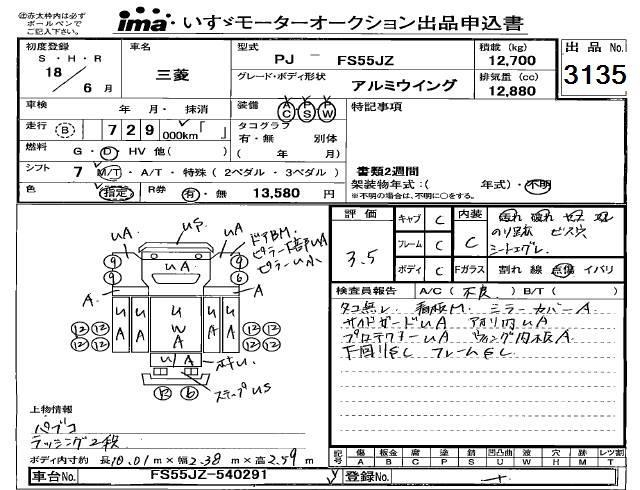 ㊟赤太枠内は必ず
ボールペンで
ご記入下さい。
ima いすゞモーターオークション出品申込書
初度登録 車名 型式 積載 (kg) 出品No.
S・H・R 18年 6月 三菱 PJ - FS55JZ 12,700 3135
グレード・ボディ形状 アルミウイング 排気量 (cc) 12,880
車検 年 月・ 抹消 装備 AC PS PW 特記事項
走行 (B) 729 000km「 」 タコグラフ 有・無 別体 ( 年 月)
燃料 G・D・HV 他( )
シフト 7 M/T・A/T・特殊(2ペダル・3ペダル) 書類2週間
色 指定 R券 有・無 13,580 円 架装物年式:( 年式)・不明
※不明の場合は、不明に○をする。
評価 3.5 キャブ C 内装 C
フレーム C
ボディ C Fガラス 割れ 線 点傷 イバリ
シートエグレ
検査員報告 A/C(不良)B/T( )
タコ無し 看板M ミラーカバーA
サイドガードUA アオリ内UA
プロテクターUA ウィング内板A
下回りSC フレームSC
UA US UA ドアBM
ピラー下部UA
ピラーUA
9 9 UA 9 6
A A
UA UA UWA UA UA
12 12 12 12
12 12 12 12
UA
ステップUS
12 6
上物情報
パブコ
ラッシング2段
ボディ内寸約 長10.01m×幅2.38m×高2.59m
記号 傷A 板金B 腐C 塗P 錆S 凹凸曲U 波W 穴H 跡M レツ割T
車台No. FS55JZ-540291 登録No.